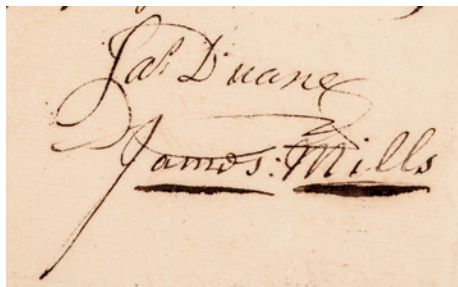 Jas Duane
James: Mills